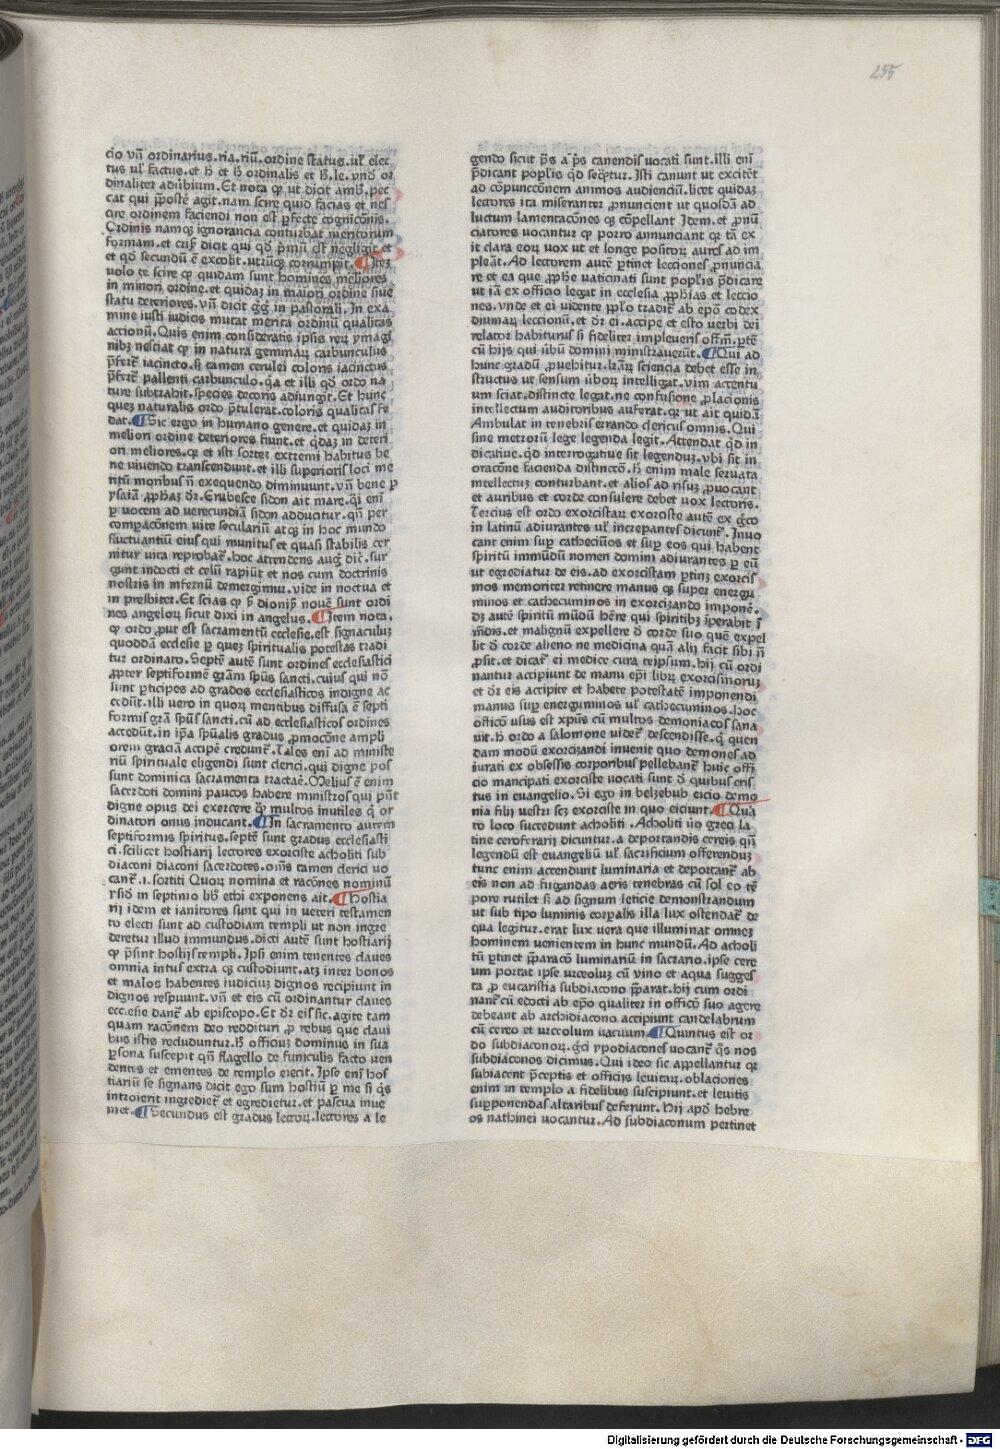 255
cio vn̄ ordinarius.ria.riū.ordine status.ul' elec
tus ul' factus.et h̄ et h̄ ordinalis et h̄.le.vnđ or
dinaliter adūbium. Et nota ꝙ ut dicit amb̄.pec
cat qui p̄postē agit.nam scire quid facias et nes
cire ordinem faciendi non est ꝑfecte cognicōnis.
Ordinis namqꝫ ignorancia conturbat meritorum
formam.et crisꝭ dicit qui qđ p̄mū est negligit et
et qđ secundū ē excolit.utrūqꝫ corrumpit. Itēꝫ
uolo te scire ꝙ quidam sunt homines meliores
in minori ordine.et quidaꝫ in maiori ordine siue
statu deteriores.vn̄ dicit ḡḡ in pastorali. In exa
mine iusti iudicis mutat merita ordinū qualitas
accionū. Quis enim consideratis ipsis reꝝ ymagi
nibꝫ nesciat ꝙ in natura gemmaꝝ carbunculus
p̄fert͛ iacincto.sꝫ tamen cerulei coloris iacinctus
p̄fert͛ pallenti carbunculo.q̇a et illi qđ ordo na
ture subtrahit.species decoris adiungit. Et hunc
queꝫ naturalis ordo p̄tulerat.coloris qualitas fe
dat. Sic ergo in humano genere.et quidaꝫ in
meliori ordine deteriores fiunt.et q̇daꝫ in deteri
ori meliores.ꝙ et isti sortes extremi habitus be
ne uiuendo transcendunt.et illi superioris loci me
ritū moribus n̄ exequendo diminuunt.vn̄ bene ꝑ
ysaiā ꝓphāꝫ dꝛ̄. Erubesce sidon ait mare.q̇i enī
ꝑ uocem ad uerecundiā sidon adducitur.qn̄ per
comꝑacōnem uite seculariū atqꝫ in hoc mundo
fluctuantiū eius qui munitus et quasi stabilis cer
nitur uita reprobat͛.hoc attendens aug̃ dic̄.sur
gunt indocti et celū rapiūt et nos cum doctrinis
nostris in infernū demergimur.vide in noctua et
in presbiter. Et scias ꝙ ẜ dionisꝭ nouē sunt ordi
nes angeloꝝ sicut dixi in angelus. Item nota.
ꝙ ordo ꝓut est sacramentū ecclesie.est signaculuꝫ
quoddā ecclesie ꝑ queꝫ spiritualis potestas tradi
tur ordinato. Septē autē sunt ordines ecclesiastici
ꝓpter septiformē grām spūs sancti.cuius qui nō
sunt ꝑticipes ad grados ecclesiasticos indigne ac
cedūt.illi uero in quoꝝ mentibus diffusa ē septi
formis grā spūs sancti.cū ad ecclesiasticos ordines
accedūt.in ip̄a spūalis gradus ꝓmocōne ampli
orem graciā accipē credunt͛. Tales enī ad ministe
riū spirituale eligendi sunt clerici.qui digne pos
sunt dominica sacramenta tractaē. Melius ē enim
sacerdoti domini paucos habere ministros qui pn̄t
digne opus dei exercere q̇ꝫ multos inutiles q̇ or
dinatori onus inducant. In sacramento autem
septiformis spiritus.septē sunt gradus ecclesiasti
ci.scilicet hostiarij lectores exorciste acholiti sub
diaconi diaconi sacerdotes.om̄s tamen clerici uo
cant͛.i.sortiti Quoꝝ nomina et racōnes nominū
ysiđ in septimo lib̄ ethi exponens ait. Hostia
rij idem et ianitores sunt qui in ueteri testamen
to electi sunt ad custodiam templi ut non ingre
deretur illud immundus.dicti autē sunt hostiarij
ꝙ p̄sint hostijs templi. Ipsi enim tenentes claues
omnia intus extra qꝫ custodiunt.atꝫ inter bonos
et malos habentes iudiciuꝫ dignos recipiunt in
dignos respuunt.vn̄ et eis cū ordinantur claues
ecclesie dant͛ ab episcopo. Et dꝛ̄ eis sic.agite tam
quam racōnem deo reddituri ꝓ rebus que claui
bus istis recluduntur. H̄ officiuꝫ dominus in sua
ꝑsona suscepit qn̄ flagello de funiculis facto uen
dentes et ementes de templo eiecit. Ipse enī hos
tiariū se signans dicit ego sum hostiū ꝑ me si q̇s
introierit ingrediet͛ et egredietur.et pascua inue
niet. Secundus est gradus lectoꝝ.lectores a le
gendo sicut p̄s a p̄s canendis uocati sunt.illi enī
p̄dicant popl'is qđ seq̄ptur. Isti canunt ut excitēt
ad cōpunccōnem animos audienciū.licet quidaꝫ
lectores ita miserantes ꝓnuncient ut quosdā ad
luctum lamentacōnes qꝫ cōpellant Idem.et ꝓnū
ciatores uocantur ꝙ porro annunciant qꝛ tā ex
it clara eoꝝ uox ut et longe positoꝝ aures ad im
pleāt. Ad lectorem autē ꝑtinet lecciones ꝓnuncia
re et ea que ꝓphe uaticinati sunt popl'is p̄dicare
ut iā ex officio legat in ecclesia ꝓphīas et leccio
nes.vnde et ei uidente ppl'o tradit͛ ab epō codex
diuinaꝝ leccionū.et dꝛ̄ ei.accipe et esto uerbi dei
relator habiturus si fideliter impleueris offm̄.ꝑtē
cū hijs qui ūbū domini ministrauerūt. Qui ad
hunc gradū ꝓuehitur.lr̄aꝝ sciencia debet esse in
structus ut sensum ūboꝝ intelligat.vim accentu
um sciat.distincte legat.ne confusione ꝓlacionis
intellectum auditoribus auferat.qꝛ ut ait quidā
Ambulat in tenebris errando clericus omnis. Qui
sine metroꝝū lege legenda legit. Attendat qđ in
dicatiue.qđ interrogatiue sit legenduꝫ.vbi sit in
oracōne facienda distinccō. H̄ enim male seruata
intellectuꝫ conturbant.et alios ad risuꝫ ꝓuocant
et auribus et corde consulere debet uox lectoris.
Tercius est ordo exorcistaꝝ exorciste autē ex g̊co
in latinū adiurantes ul' increpantes dicunt͛. Inuo
cant enim suꝑ cathecūīos et suꝑ eos qui habent
spiritū immūdū nomen domini adiurantes ꝑ eū
ut egrediatur de eis.ad exorcistam ꝑtinꝫ exorcis
mos memoriter retinere manus qꝫ super energu
minos et cathecuminos in exorcizando imponē.
dꝫ autē spiritū mūdū hēre qui spiritibꝫ īperabit ī
mūdis.et malignū expellere đ corde suo quē expel
lit đ corde alieno ne medicina quā alij facit sibi n̄
ꝓsit.et dicat͛ ei medice cura teipsum.hij cū ordi
nantur accipiunt de manu epī libꝝ exorcismoruꝫ
et dꝛ̄ eis accipite et habete potestatē imponendi
manus suꝑ energuminos ul' cathecuminos.hoc
officō usus est xpūs cū multos demoniacos sana
uit.h̄ ordo a salomone uidet͛ descendisse.q̇ quen
dam modū exorcizandi inuenit quo demones ad
iurati ex obsessis corporibus pellebant͛ huic offi
cio mancipati exorciste uocati sunt đ quibus cris
tus in euangelio. Si ego in belzebub eicio demo
nia filij uestri scꝫ exorciste in quo eiciunt. Quar
to loco succedunt acholiti. Acholiti ūo greci la
tine ceroferarij dicuntur.a deportandis cereis qn̄
legendū est euangeliū ul' sacrificium offerenduꝫ
tunc enim accendunt luminaria et deportant͛ ab
eis non ad fugandas aeris tenebras cū sol eo tē
pore rutilet sꝫ ad signum leticie demonstrandum
ut sub tipo luminis corpalis illa lux ostendat͛ de
qua legitur.erat lux uera que illuminat omneꝫ
hominem uenientem in hunc mundū. Ad acholi
tū ꝑtinet p̄paracō luminariū in sacrario.ipse cere
um portat ipse urceoluꝫ cū vino et aqua sugges
ta ꝓ eucaristia subdiacono p̄parat.hij cum ordi
nant͛ cū edocti ab epō qualiter in officō suo agere
debeant ab archidiacono accipiunt candelabrum
cū cereo et urceolum uacuum. Quintus est or
do subdiaconoꝝ.g̊ci ypodiacones uocant͛ q̇s nos
subdiaconos dicimus. Qui ideo sic appellantur qꝛ
subiacent p̄ceptis et officijs leuitaꝝ.oblaciones
enim in templo a fidelibus suscipiunt.et leuitis
suꝑponendas altaribus deferunt. Hij apđ hebre
os nathinei uocantur. Ad subdiaconum pertinet
Digitalisierung gefördert durch die Deutsche Forschungsgemeinschaft - DFG